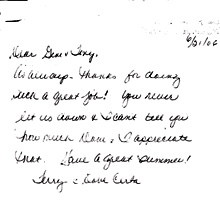 6/21/06
Dear Gene & Terry,
As always, thanks for doing
such a great job! You never
let us down & I can't tell you
how much Dave & I appreciate
that. Have a great summer!
Terry & Dave